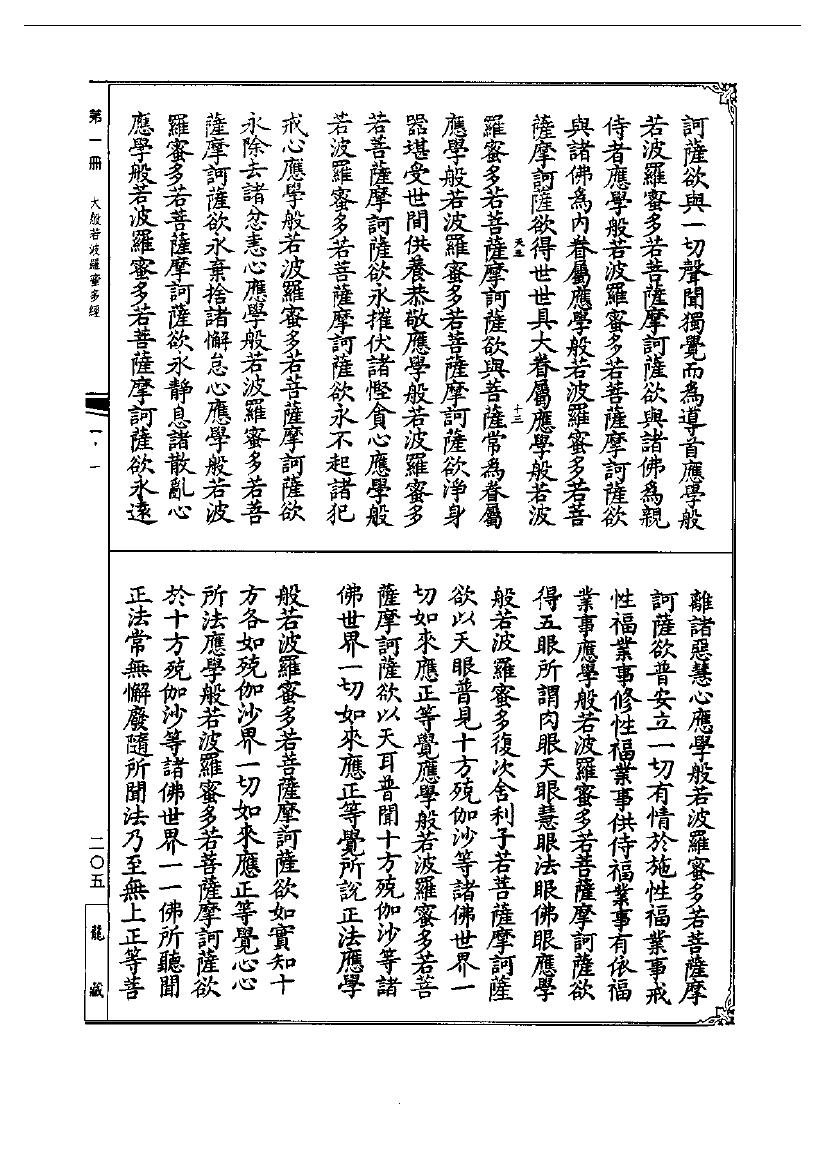 訶薩欲與一切聲聞獨覺而為導首應學般
若波羅蜜多若菩薩摩訶薩欲與諸佛為親
侍者應學般若波羅蜜多若菩薩摩訶薩欲
與諸佛為內眷屬應學般若波羅蜜多若菩
薩摩訶薩欲得世世具大眷屬應學般若波
天五
十三
羅蜜多若菩薩摩訶薩欲與菩薩常為眷屬
應學般若波羅蜜多若菩薩摩訶薩欲淨身
器堪受世間供養恭敬應學般若波羅蜜多
若菩薩摩訶薩欲永摧伏諸慳貪心應學般
若波羅蜜多若菩薩摩訶薩欲永不起諸犯
戒心應學般若波羅蜜多若菩薩摩訶薩欲
永除去諸忿恚心應學般若波羅蜜多若菩
薩摩訶薩欲永棄捨諸懈怠心應學般若波
羅蜜多若菩薩摩訶薩欲永靜息諸散亂心
應學般若波羅蜜多若菩薩摩訶薩欲永遠
離諸惡慧心應學般若波羅蜜多若菩薩摩
訶薩欲普安立一切有情於施性福業事戒
性福業事修性福業事供侍福業事有依福
業事應學般若波羅蜜多若菩薩摩訶薩欲
得五眼所謂肉眼天眼慧眼法眼佛眼應學
般若波羅蜜多復次舍利子若菩薩摩訶薩
欲以天眼普見十方殑伽沙等諸佛世界一
切如來應正等覺應學般若波羅蜜多若菩
薩摩訶薩欲以天耳普聞十方殑伽沙等諸
佛世界一切如來應正等覺所說正法應學
般若波羅蜜多若菩薩摩訶薩欲如實知十
方各如殑伽沙界一切如來應正等覺心心
所法應學般若波羅蜜多若菩薩摩訶薩欲
於十方殑伽沙等諸佛世界一一佛所聽聞
正法常無懈廢隨所聞法乃至無上正等菩
第一冊 大般若波羅蜜多經
一·一
二〇五
龍藏